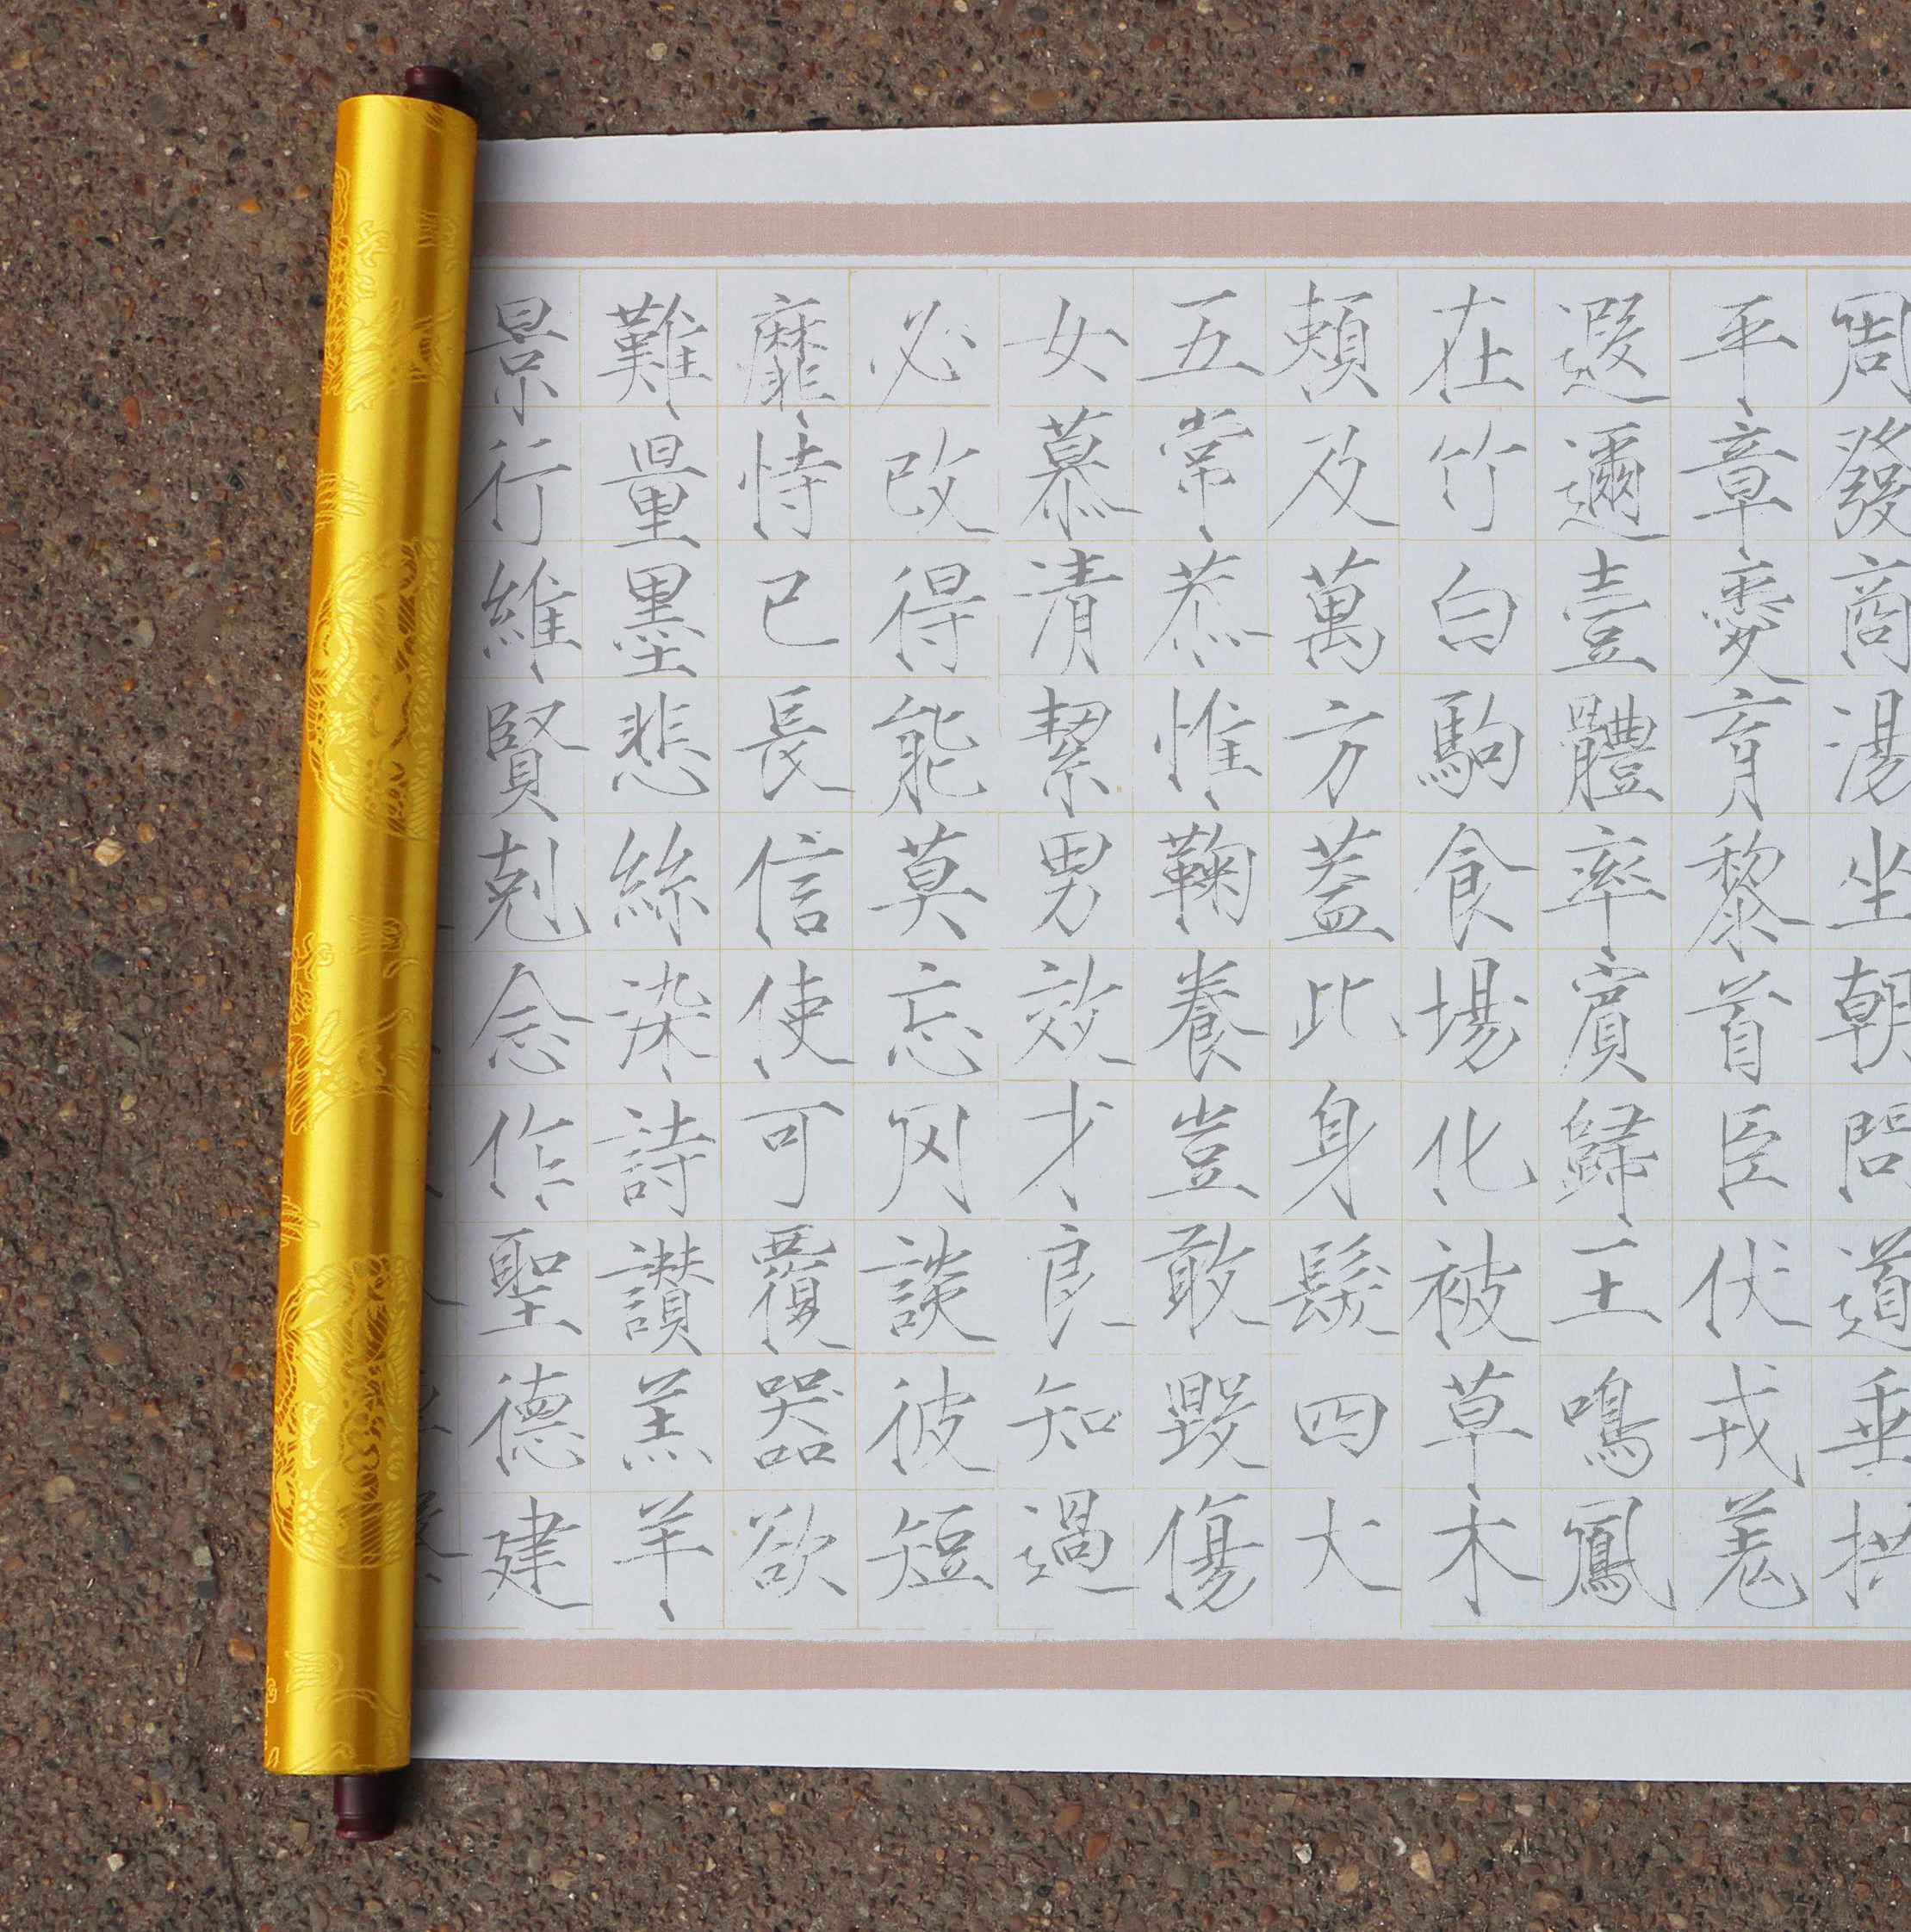 周發商湯坐朝問道垂拱
平章愛育黎首臣伏戎羌
遐邇壹體率賓歸王鳴鳳
在竹白駒食場化被草木
賴及萬方蓋此身髮四大
五常恭惟鞠養豈敢毀傷
女慕清絜男效才良知過
必改得能莫忘罔談彼短
靡恃己長信使可覆器欲
難量墨悲絲染詩讚羔羊
景行維賢剋念作聖德建